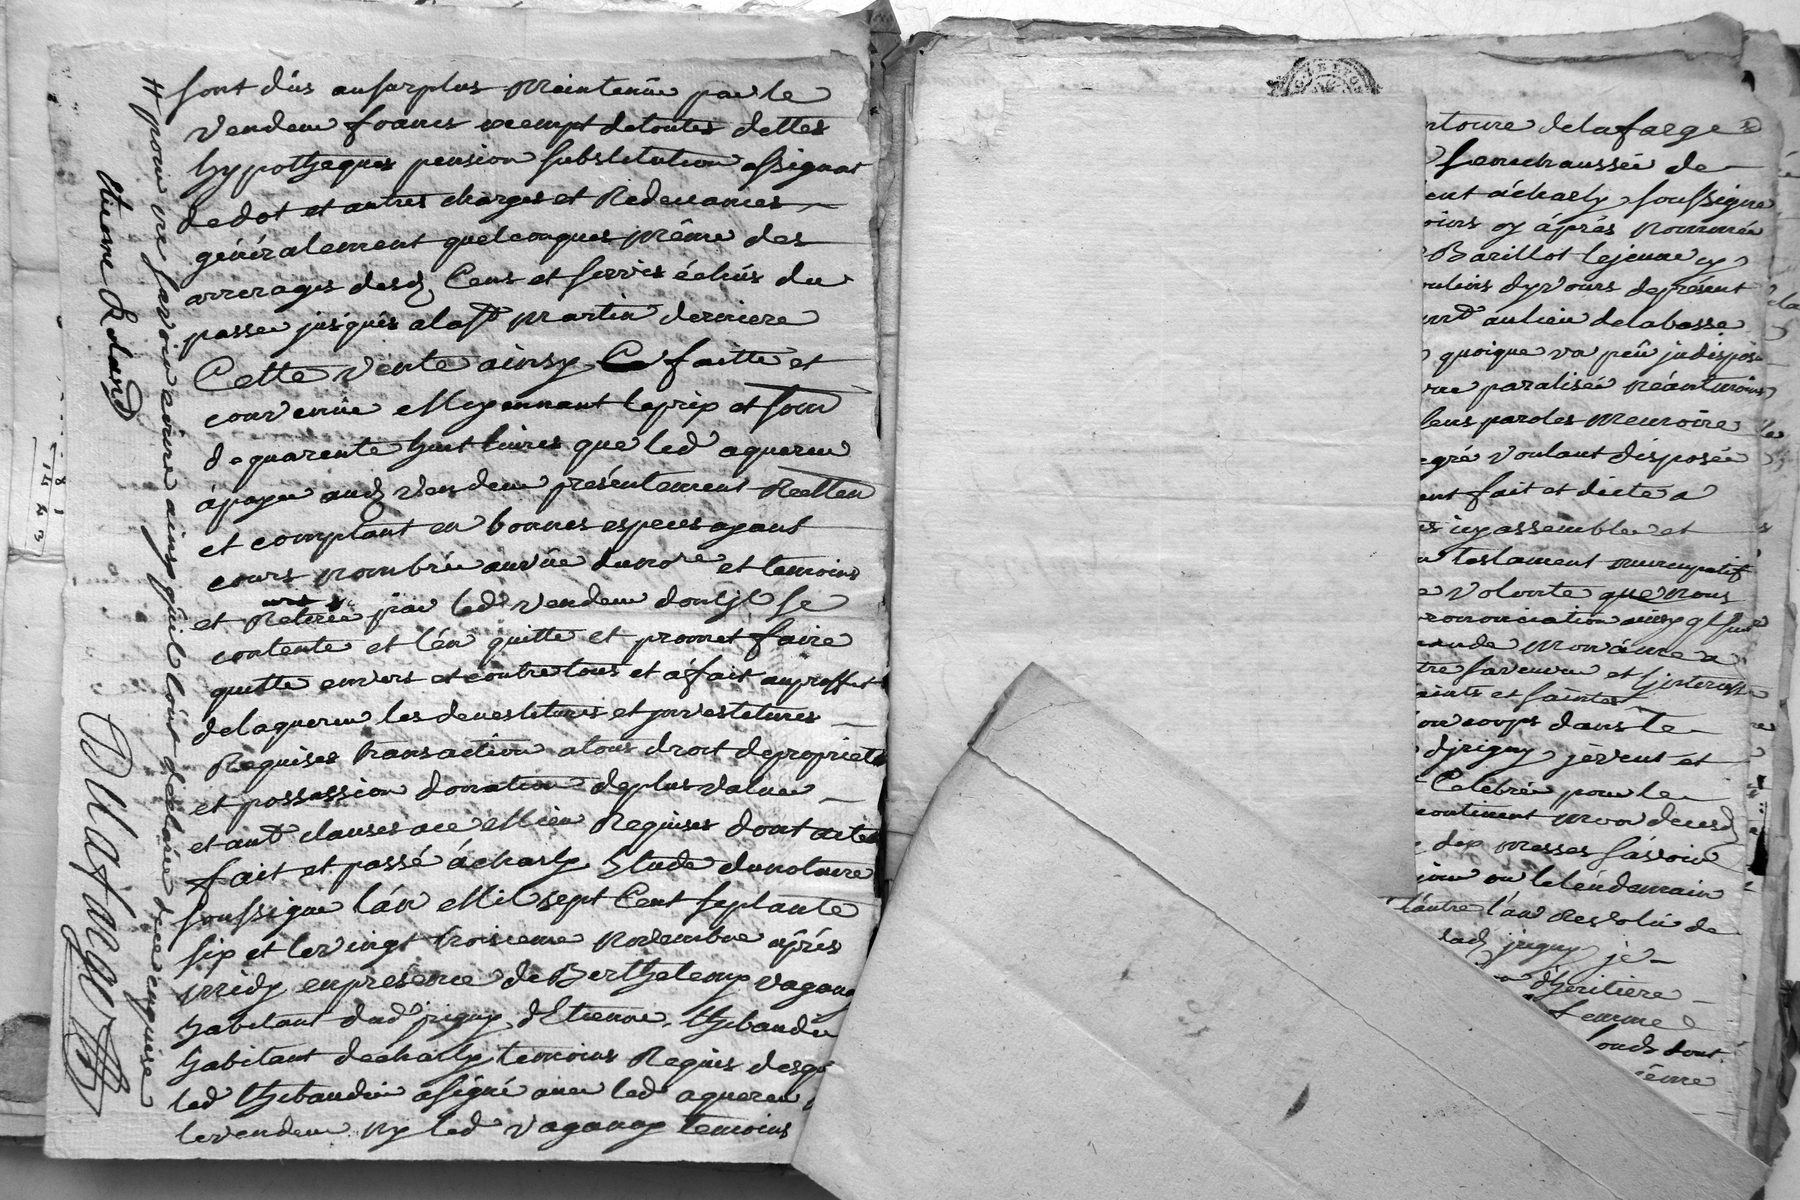 sont dûs ausurplus Maintenüe par le
Vendeur francs exempt detoutes dettes
hypotheques pension substitution assignat
de dot et autres charges et Redevances
généralement quelconques même des
arrerages desd. Cens et servis échûs du
passé jusques a la st martin derniere
Cette vente ainsy faitte et
convenüe Moyennant le prix et som
de quarente huit livres que led aquereur
à payé aud vendeur présentement Reellem
et comptant en bonnes especes ayant
cours nombrée auvüe dunore et temoins
et Retirée par led vendeur dont il se
contente et l'en quitte et promet faire
quitte envers et contre tous et à fait au proffit
de laquereur les devestitures et jnvestitures
Requises transaction a tous droit depropriete
et possession donation deplus value
et autt clauses ace Mien Requises dont acte
fait et passé à charly Etude dunotaire
soussigné l'an Mil sept Cent septante
six et le vingt troisieme Novembre après
midy en presence de Berthelemy vaganay
habitant dud jrigny d'Etienne thibaudin
habitant decharly temoins Requis desq
led thibaudin a signé avec led aquereur
le vendeur ny led vaganay temoins
# pour ne savoir ecrire ainsy qu'il l'ont déclaré de ce enquise
etienne
Dlafarge
1 8 1
1 4 4 3
ntoire delafarge
senechaussée de
ent à charly soussigné
oins cy après nommée
Barillot lejeune
oulins dyvours deprésent
aulieu de labasse
quoique un peu jndispose
paralisée néantmoins
sens paroles memoire
gré voulant disposée
ent fait et dicté a
icy assemblée et
testament nuncupatif
volonté que nous
prononciation ainsy q
ande Mon âme a
tre sauveur et
aints et saintes
on corps dans le
d jrigny jèveut et
Celebrée pour le
continent mon deces
dix messes savoir
jour ou lelendemain
l'autre l'an Revolu de
lad jrigny je
d'heritiere
femme
fonds dont
ième